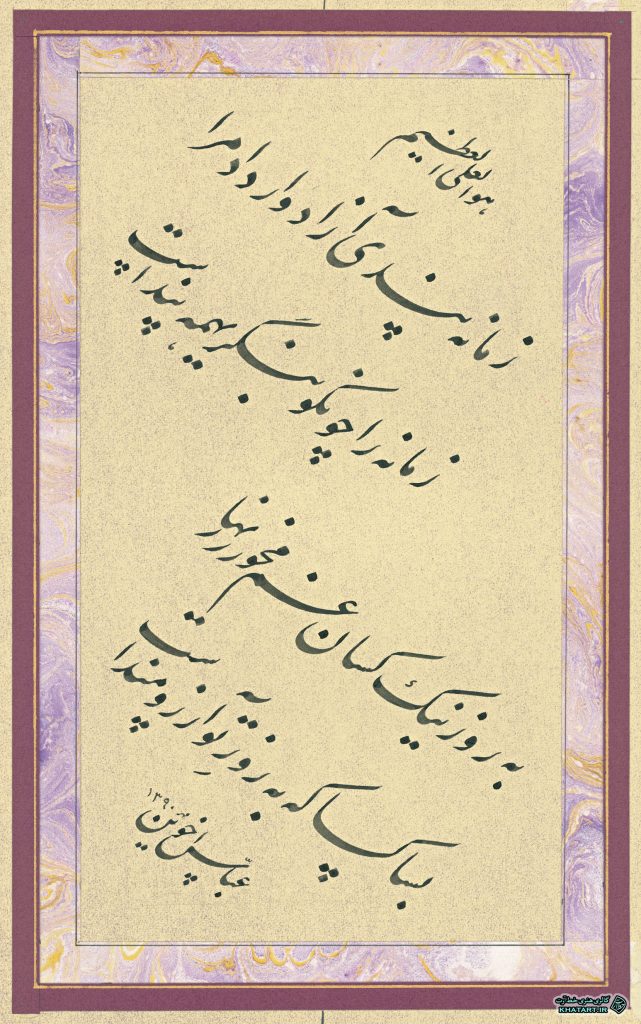 هو العلی العظیم
زمانه پندی آزادوار داد مرا
زمانه را چو نکو بنگری همه پند است
به روز نیک کسان غم مخور زنهار
بسا کسا که به روز تو آرزومند است
عباس اخوین ۱۳۹۰
گالری هنری خط آرت
KHATART.IR